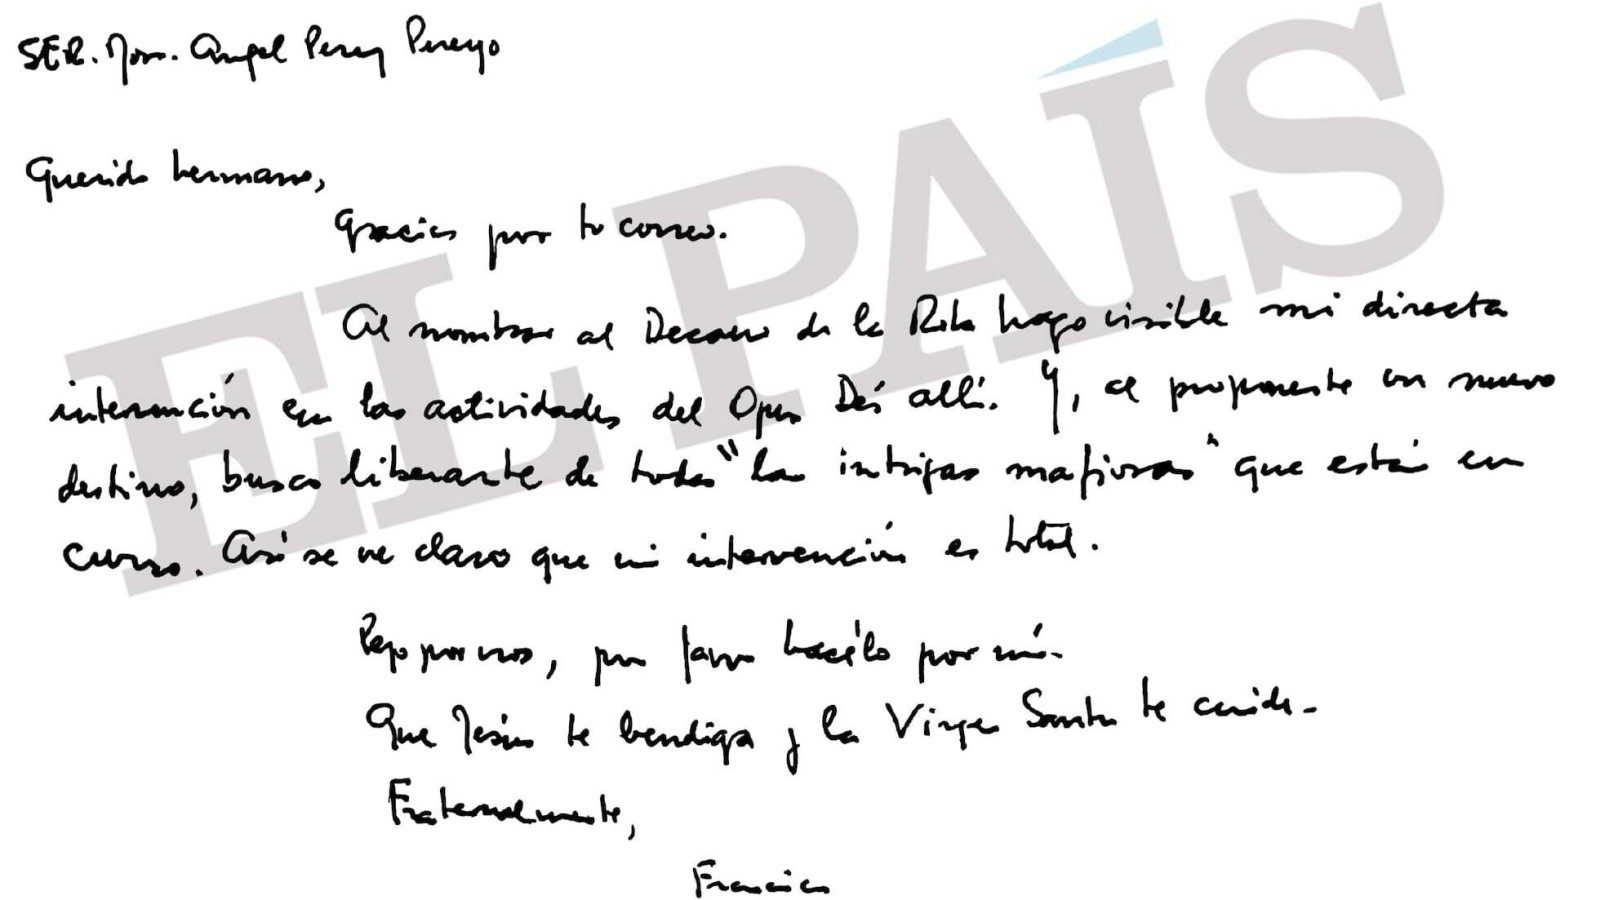 SER. Mons. Angel Perez Pueyo
Querido hermano,
Gracias por tu correo.
Al nombrar al Decano de la Rota hago visible mi directa
intervención en las actividades del Opus Dei allí. Y, al proponerte un nuevo
destino, busco liberarte de todas "las intrigas mafiosas" que están en
curso. Así se ve claro que mi intervención es total.
Rezo por vos, por favor hacélo por mí.
Que Jesús te bendiga y la Virgen Santa te cuide.
Fraternalmente,
Francisco
EL PAÍS